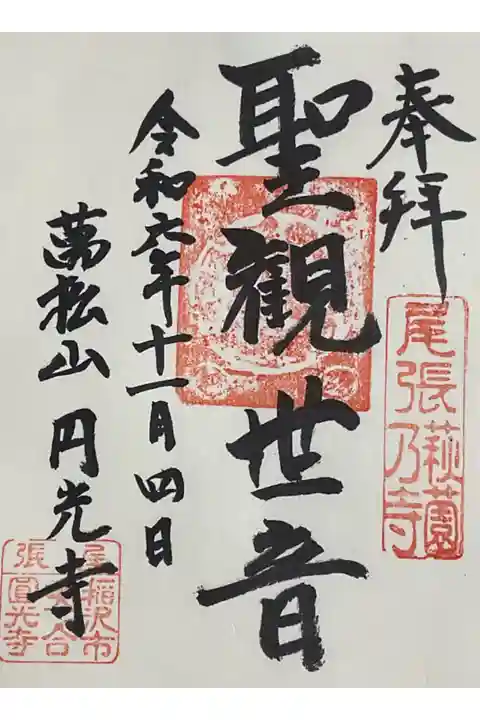 奉拝
尾張
萩薗
乃寺
聖観世音
令和六年十一月四日
萬松山 円光寺
尾張
稲沢市
矢合
圓光寺